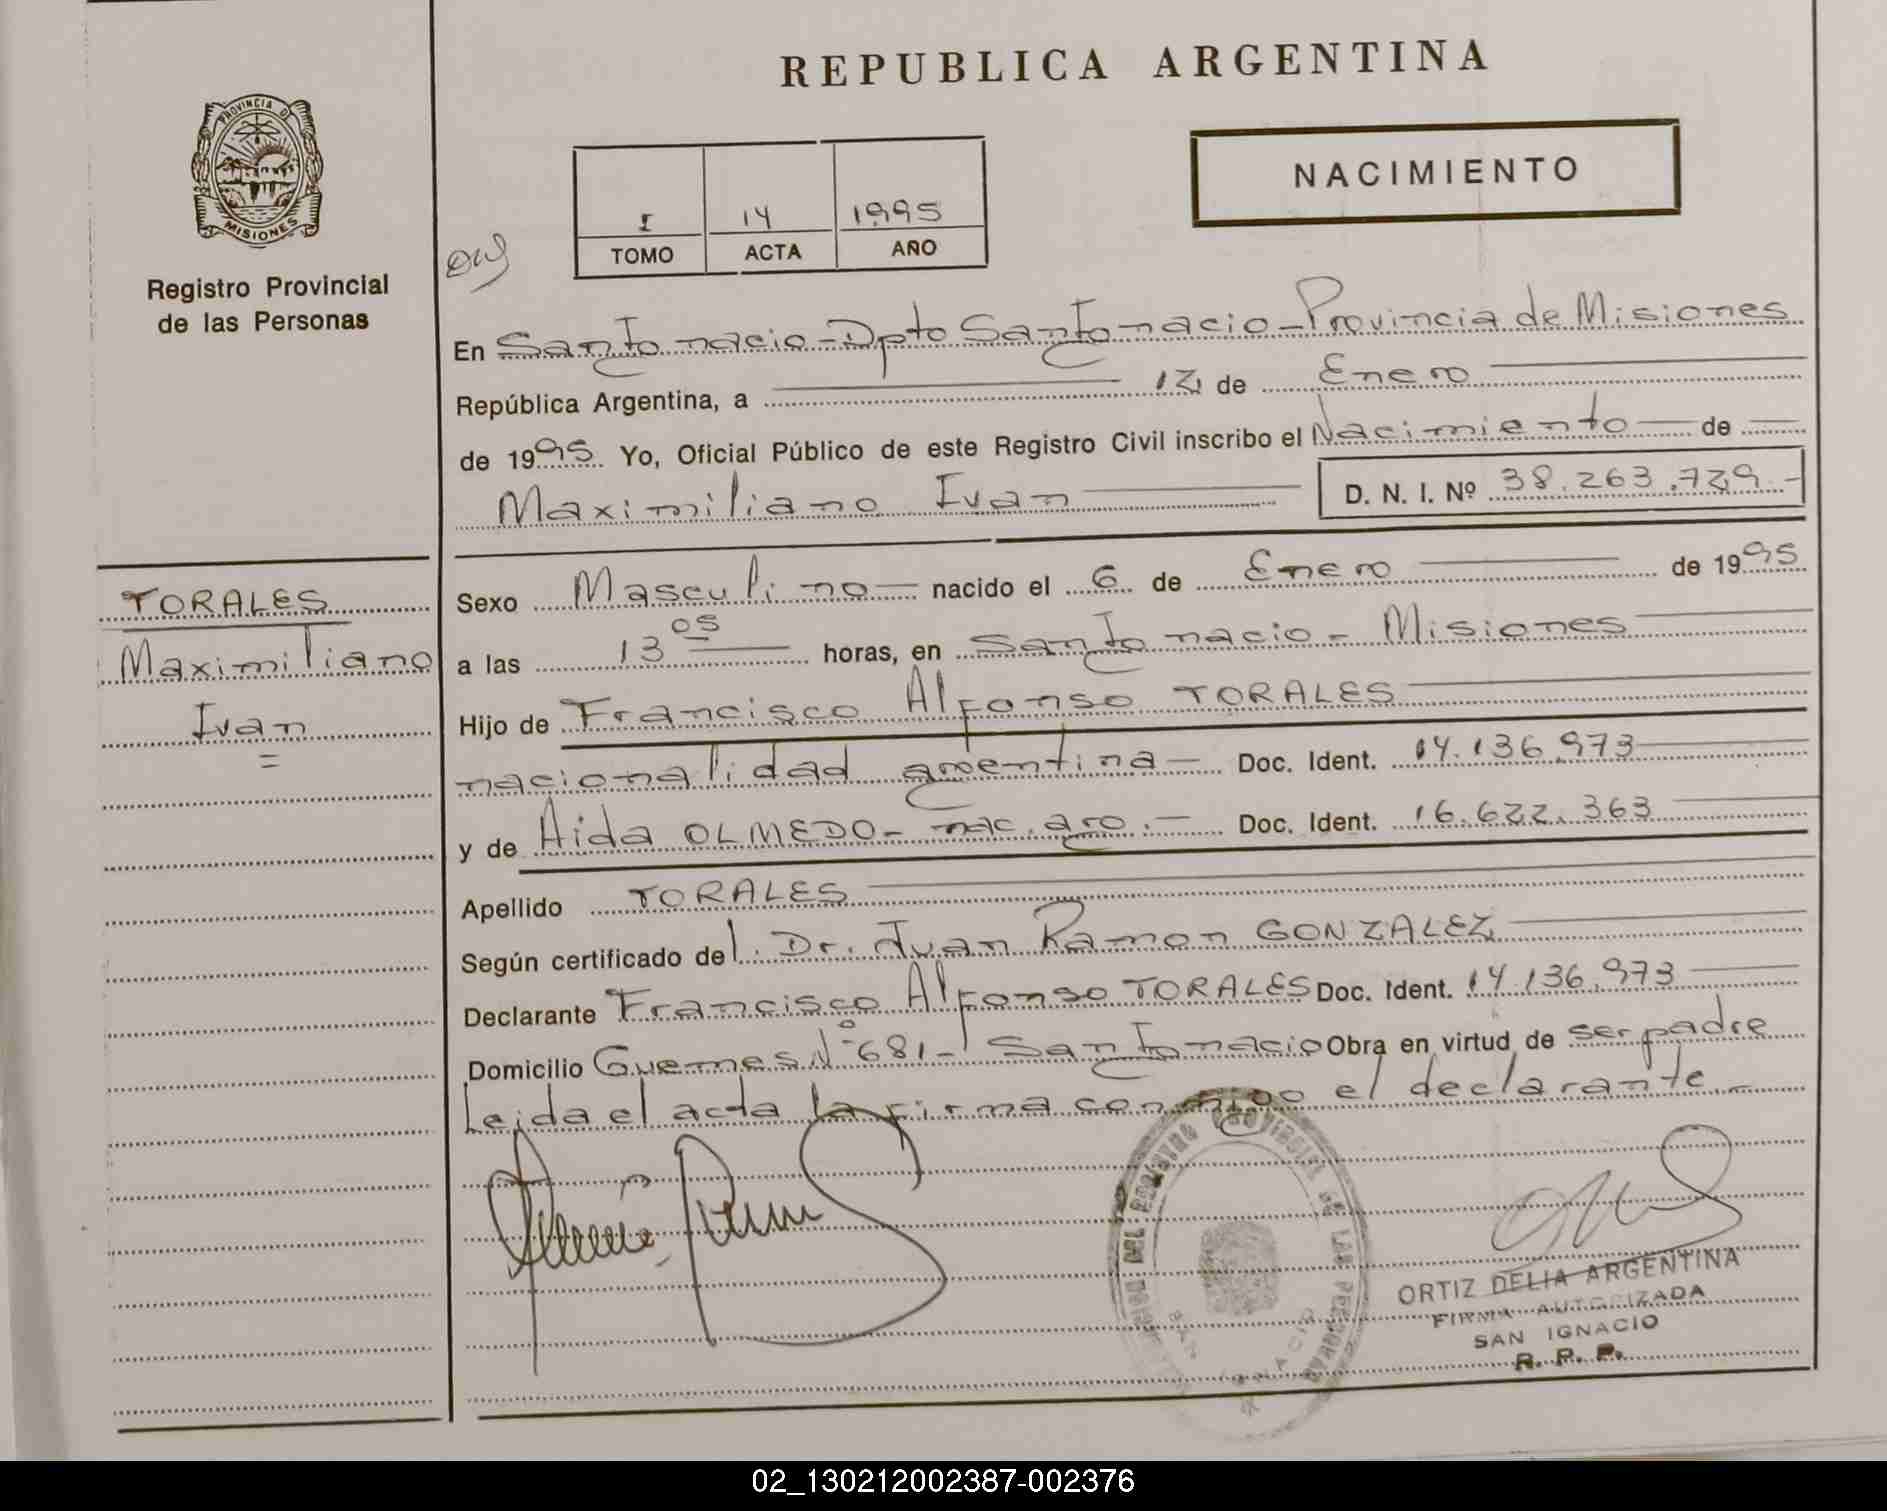 REPUBLICA ARGENTINA
PROVINCIA DE
MISIONES
Registro Provincial
de las Personas
NACIMIENTO
I 14 1995
TOMO ACTA AÑO
En San Ignacio - Dpto San Ignacio - Provincia de Misiones
República Argentina, a 12 de Enero
de 1995 Yo, Oficial Público de este Registro Civil inscribo el Nacimiento de
Maximiliano Ivan D. N. I. Nº 38.263.729.-
TORALES
Maximiliano
Ivan
Sexo Masculino nacido el 6 de Enero de 1995
a las 13 05 horas, en San Ignacio - Misiones
Hijo de Francisco Alfonso TORALES
nacionalidad argentina - Doc. Ident. 14.136.973
y de Aida OLMEDO - nac. arg. - Doc. Ident. 16.622.363
Apellido TORALES
Según certificado del Dr. Juan Ramon GONZALEZ
Declarante Francisco Alfonso TORALES Doc. Ident. 14.136.973
Domicilio Guemes Nº 681 - San Ignacio Obra en virtud de ser padre
Leida el acta la firma conmigo el declarante -
DEL REGISTRO PROVINCIAL DE LAS PERSONAS
SAN IGNACIO
ORTIZ DELIA ARGENTINA
FIRMA AUTORIZADA
SAN IGNACIO
R. P. P.
02_130212002387-002376